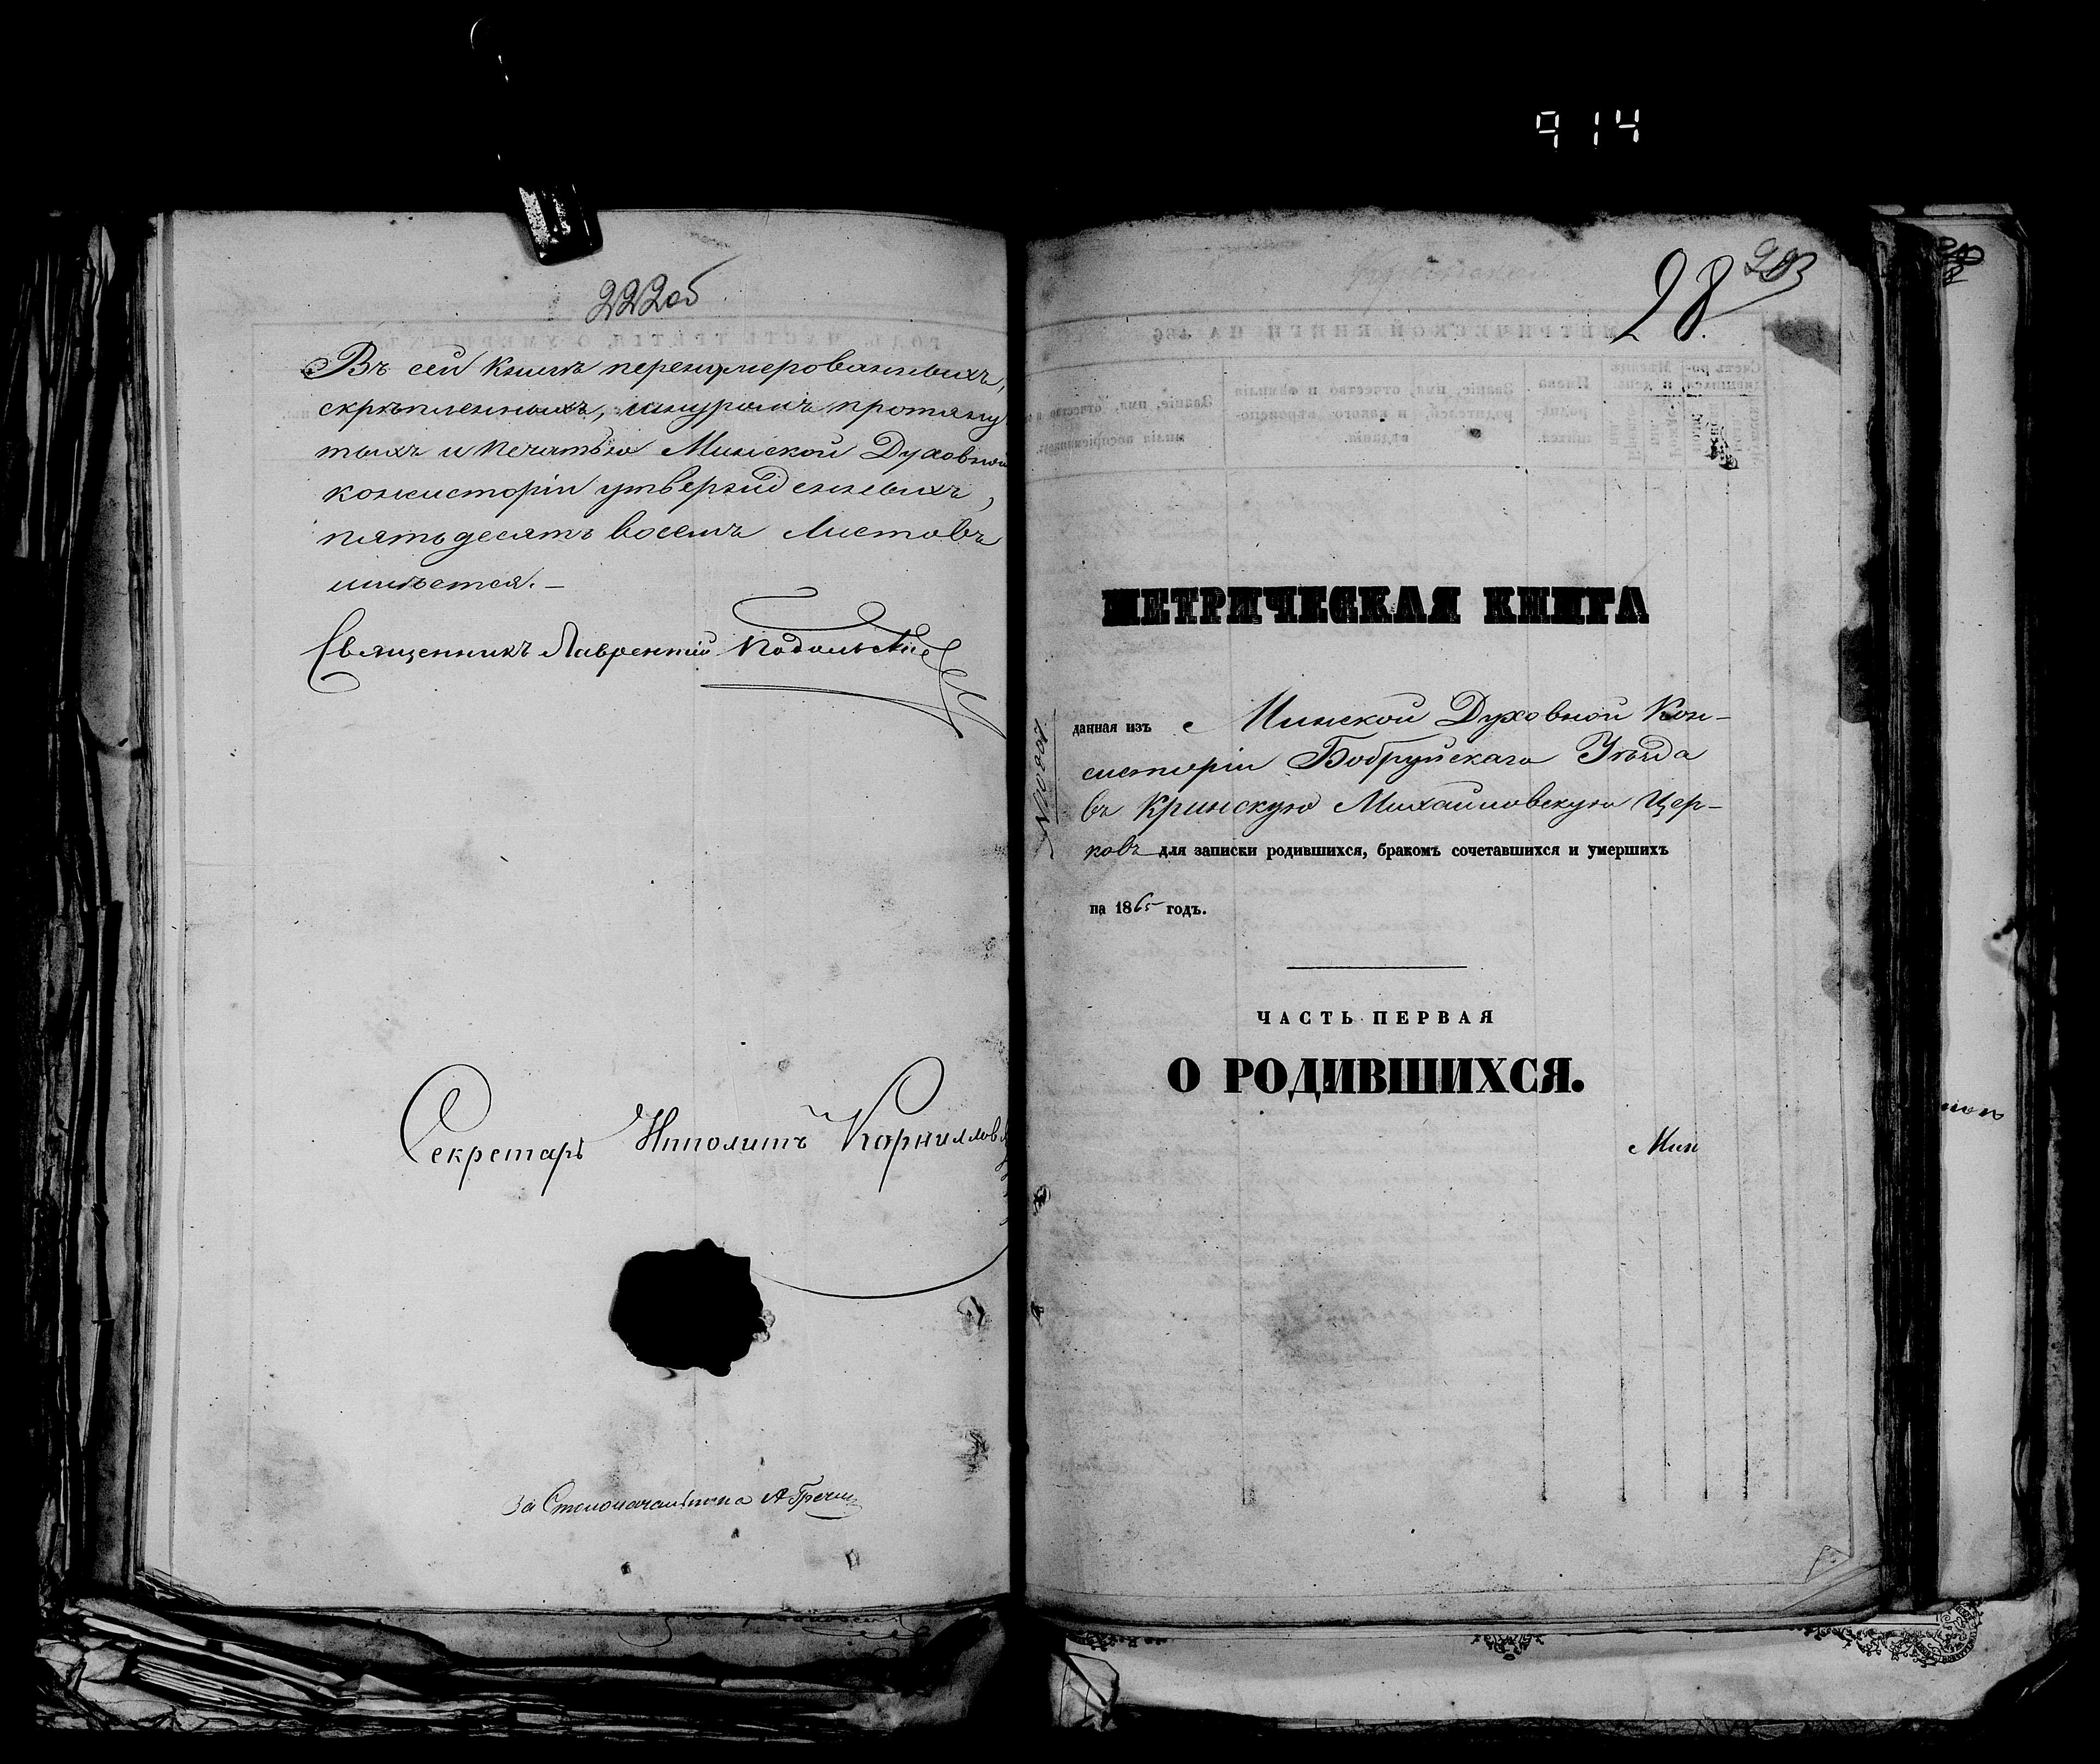 914
222об
Въ сей книгѣ перенумерованныхъ,
скрѣпленныхъ, шнуромъ протяну
тыхъ и печатью Минской Духовной
консисторіи утвержденныхъ,
пятьдесятъ восемь листовъ
имѣется.—
Священникъ Лаврентій Подольскій
Секретарь Ипполитъ Корниллов
За Столоначальника А Гречи
28
223
МЕТРИЧЕСКАЯ КНИГА
данная изъ Минской Духовной Кон-
систоріи Бобруйскаго Уѣзда
въ Кринскую Михайловскую Цер-
ковь для записки родившихся, бракомъ сочетавшихся и умершихъ
на 1865 годъ.
ЧАСТЬ ПЕРВАЯ
О РОДИВШИХСЯ.
Мин